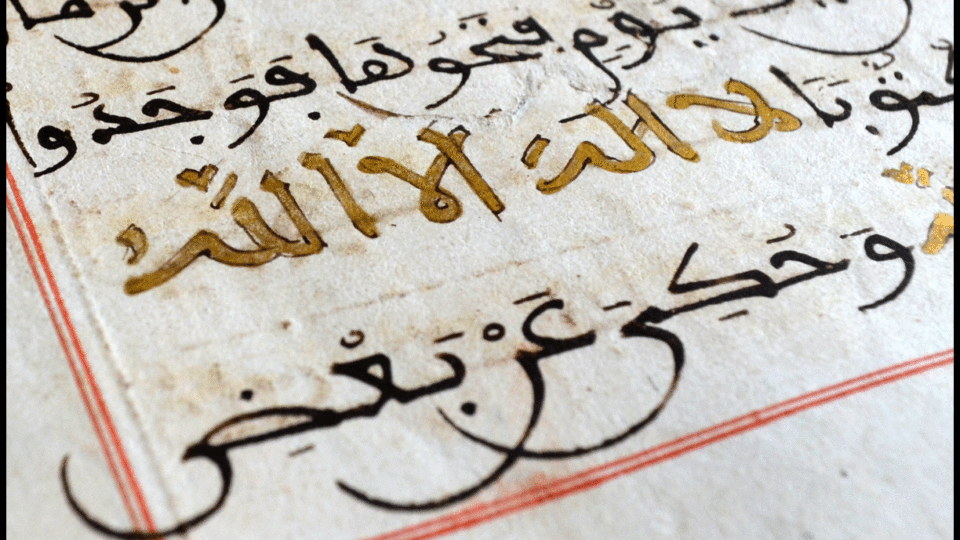 يوم فتحوها فوجدوا
لا اله الا اللهُ
وَحُكِيَ عَنْ بَعْضِ